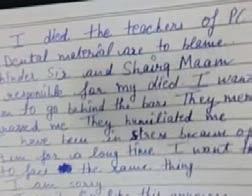 I died the teachers of PC
Dental material are to blame
hinder Sir and Shairg Maam
responible for my died I want
m to go behind the bars They men
rassed me They humiliated me
have been in stress because of
em for a long time I want the
to face the same thing
I am sorry
like this anymore